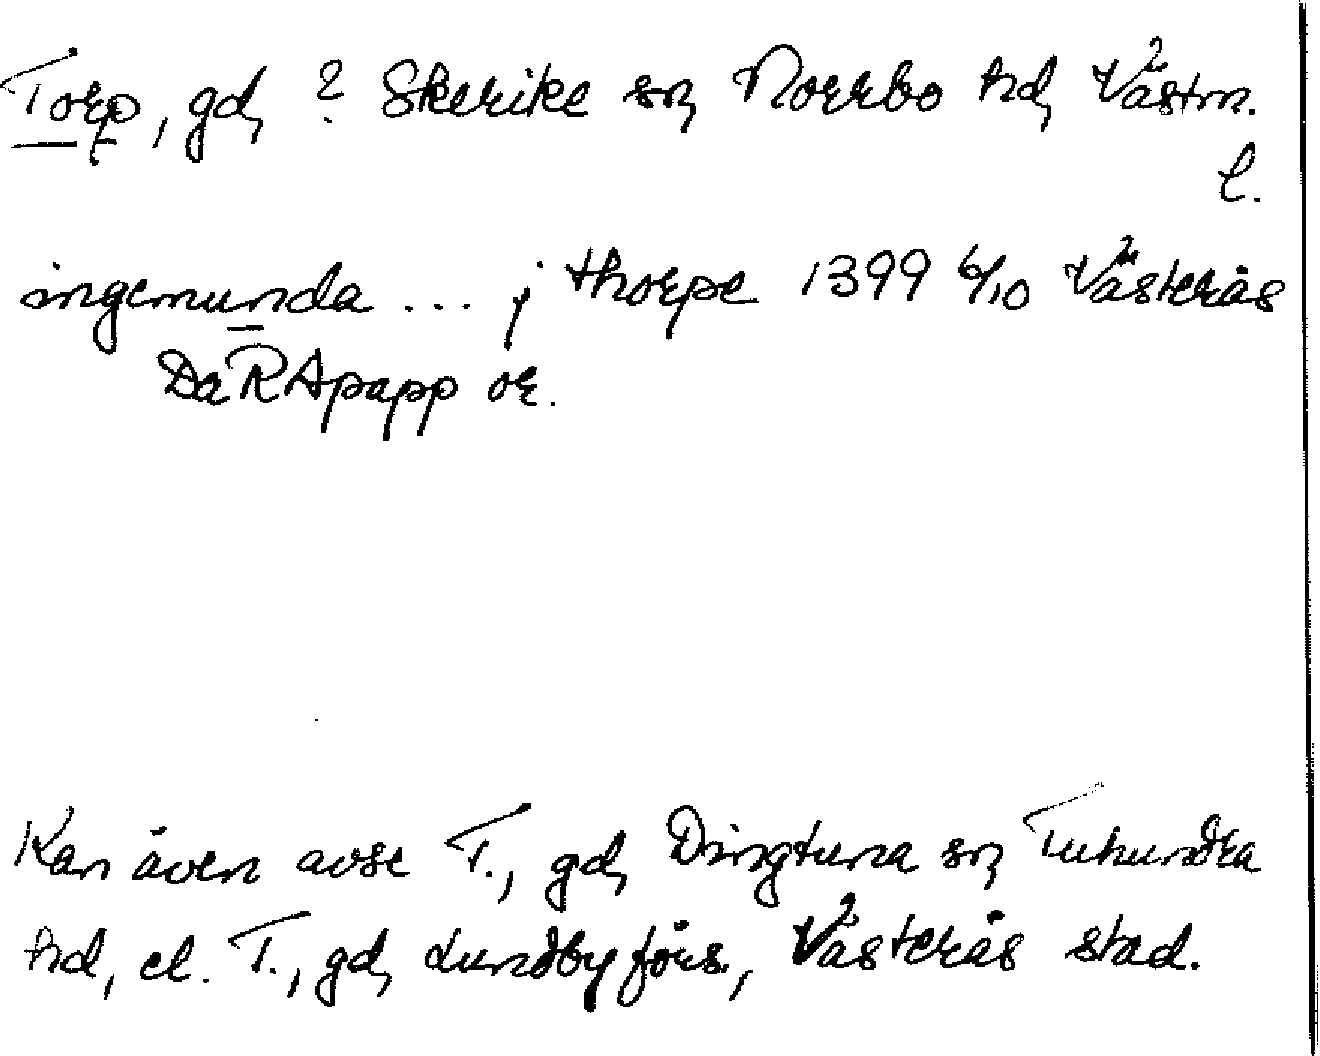 Torp, gd, ? Skerike sn, Norrbo hd, Västm.
l.
ingemunda ... j thorpe 1399 6/10 Västerås
Da RApapp or.
Kan även avse T., gd, Dingtuna sn, Tuhundra
hd, el. T., gd, Lundby förs., Västerås stad.